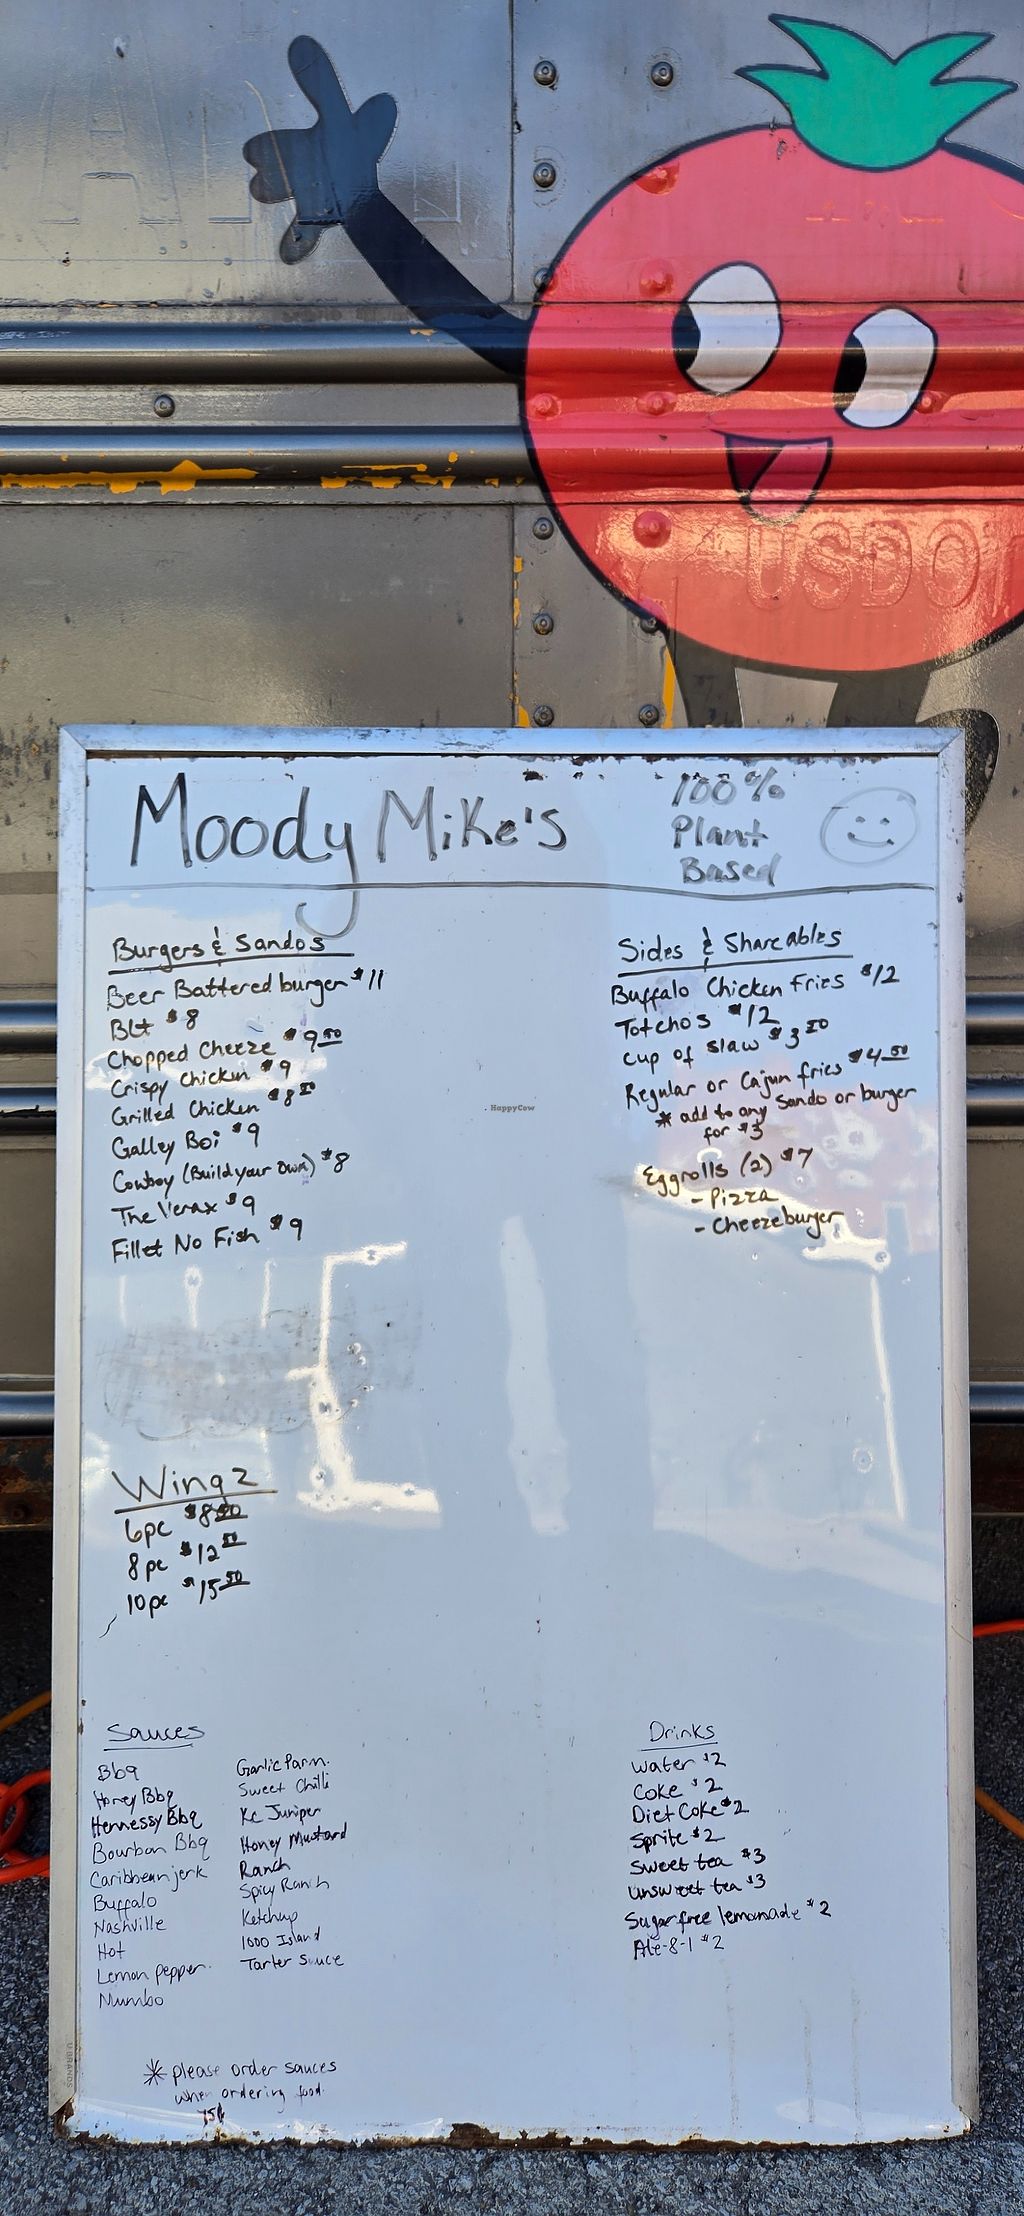 USDOT
Moody Mike's
100%
Plant
Based
Burgers & Sandos
Beer Battered burger $11
Blt $8
Chopped Cheeze $9.50
Crispy Chicken $9
Grilled Chicken $8.50
Galley Boi $9
Cowboy (Build your own) $8
The Verax $9
Fillet No Fish $9
Sides & Shareables
Buffalo Chicken Fries $12
Totchos $12
Cup of slaw $3.50
Regular or Cajun fries $4.50
* add to any Sando or burger
for $3
Eggrolls (2) $7
- Pizza
- Cheezeburger
HappyCow
Wingz
6pc $8.50
8pc $12.50
10pc $15.50
Sauces
Bbq
Honey Bbq
Hennessy Bbq
Bourbon Bbq
Caribbean jerk
Buffalo
Nashville
Hot
Lemon pepper
Mumbo
Garlic Parm.
Sweet Chilli
Kc Juniper
Honey Mustard
Ranch
Spicy Ranch
Ketchup
1000 Island
Tarter Sauce
Drinks
Water $2
Coke $2
Diet Coke $2
Sprite $2
Sweet tea $3
Unsweet tea $3
Sugarfree lemonade $2
Ale-8-1 $2
* please order sauces
when ordering food.
UBRANDS